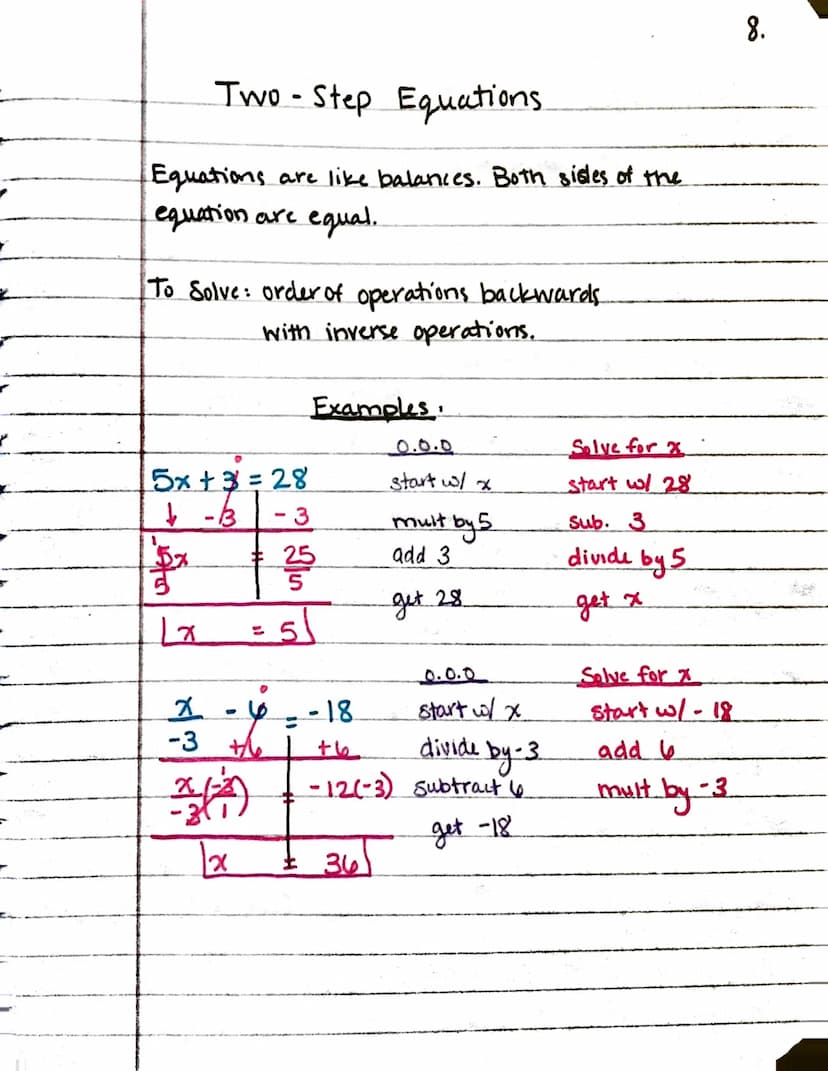 8.
Two-Step Equations
Equations are like balances. Both sides of the
equation are equal.
To Solve: order of operations backwards
with inverse operations.
Examples:
o.o.o Solve for x
5x + 3 = 28 start w/ x start w/ 28
↓ -3 | -3 mult by 5 sub. 3
5x/5 = 25/5 add 3 divide by 5
get 28 get x
x = 5
o.o.o Solve for x
x/-3 - 6 = -18 start w/ x start w/ -18
+6 | +6 divide by -3 add 6
x/-3 (-3/1) = -12(-3) subtract 6 mult by -3
get -18
x = 36